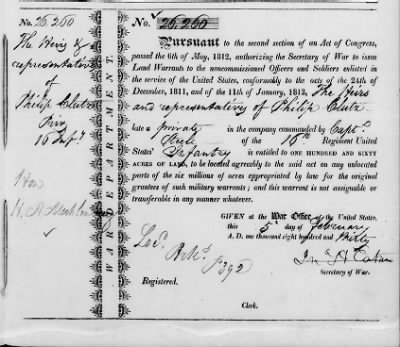 26,260
The Heirs &
representatives
of
Philip Clutz
Priv
16 Inft
Hon
WAR DEPARTMENT.
No. 26,260
Pursuant to the second section of an Act of Congress,
passed the 6th of May, 1812, authorizing the Secretary of War to issue
Land Warrants to the noncommissioned Officers and Soldiers enlisted in
the service of the United States, conformably to the acts of the 24th of
December, 1811, and of the 11th of January, 1812, The Heirs
and representatives of Philip Clutz
late a private in the company commanded by Capt
of the 16th Regiment United
States' Infantry is entitled to ONE HUNDRED AND SIXTY
ACRES OF LAND, to be located agreeably to the said act on any unlocated
part of the six millions of acres appropriated by law for the original
grantees of such military warrants; and this warrant is not assignable or
transferable in any manner whatever.
GIVEN at the War Office of the United States,
this 5 day of February
A. D. one thousand eight hundred and thirty
Jn. H. Eaton
Secretary of War.
Loc. Ark.
p 392
Registered.
Clerk.